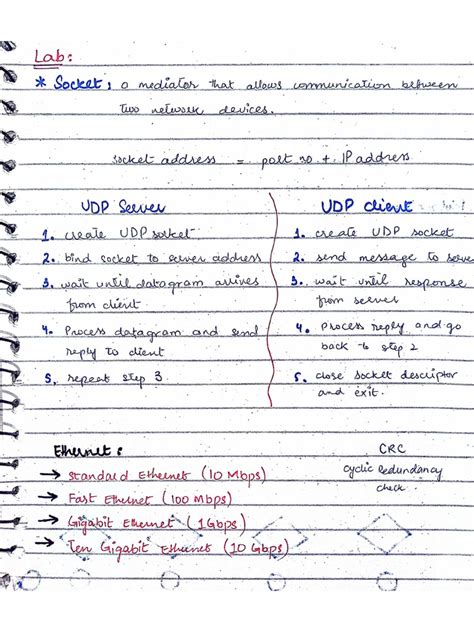 Lab:
* Socket: a mediator that allows communication between
two network devices.
socket address = port no + IP address
UDP Server
1. create UDP socket
2. bind socket to server address
3. wait until datagram arrives
from client
4. Process datagram and send
reply to client
5. repeat step 3.
UDP client
1. create UDP socket
2. send message to server
3. wait until response
from server
4. process reply and go
back to step 2
5. close socket descriptor
and exit.
Ethernet:
→ Standard Ethernet (10 Mbps)
→ Fast Ethernet (100 Mbps)
→ Gigabit Ethernet (1Gbps)
→ Ten Gigabit Ethernet (10 Gbps)
CRC
cyclic redundancy
check